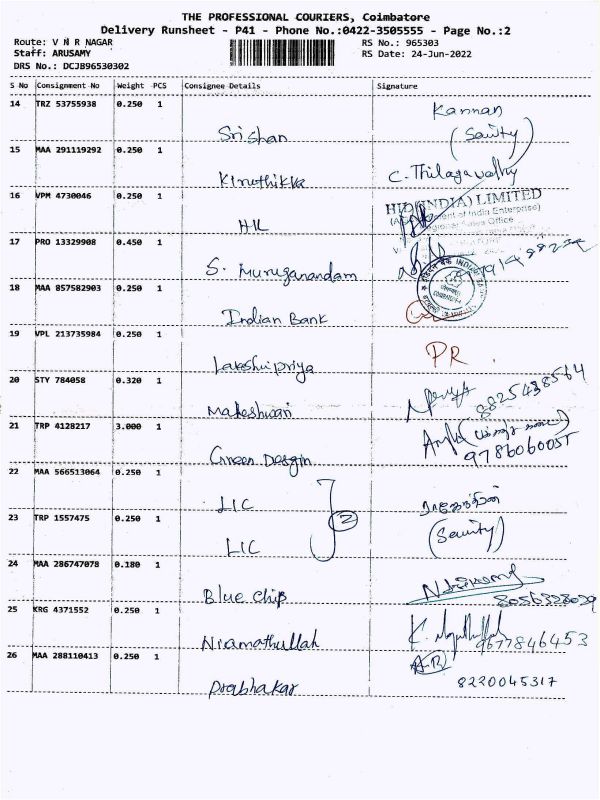 THE PROFESSIONAL COURIERS, Coimbatore
Delivery Runsheet - P41 - Phone No.:0422-3505555 - Page No.:2
Route: V N R NAGAR RS No.: 965303
Staff: ARUSAMY RS Date: 24-Jun-2022
DRS No.: DCJB96530302
S No Consignment No Weight PCS Consignee Details Signature
14 TRZ 53755938 0.250 1 Kannan
Srishan (Seurity)
15 MAA 291119292 0.250 1
Kiruthikka C. Thilagavathy
16 VPM 4730046 0.250 1 (INDIA) LIMITED
HIL of India Enterprise)
Office
17 PRO 13329908 0.450 1
S. Muruganandam
18 MAA 857582903 0.250 1
Indian Bank
19 VPL 213735984 0.250 1
Lakshipriya PR.
20 STY 784058 0.320 1
Maheshwari 8825438564
21 TRP 4128217 3.000 1
Green Desgin 9786060055
22 MAA 566513064 0.250 1
LIC
2
23 TRP 1557475 0.250 1
LIC (Seurity)
24 MAA 286747078 0.180 1
Blue chip 8056328029
25 KRG 4371552 0.250 1
Niamathullah 9677846453
26 MAA 288110413 0.250 1 A.R
Prabhakar 8220045317